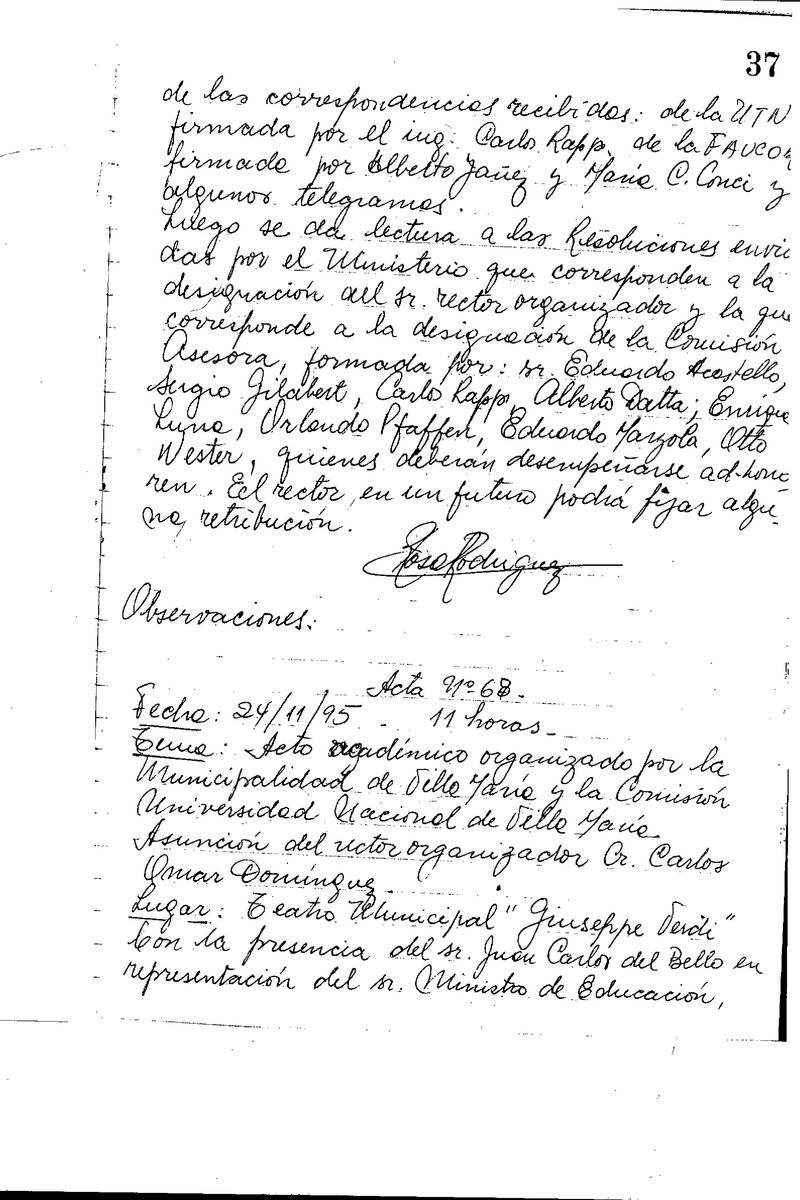 37
de las correspondencias recibidas: de la UTN
firmada por el ing. Carlo Rapp, de la
firmada por Alberto Yañez y María C. Conci y
algunos telegramas.
Luego se da lectura a las Resoluciones envia
das por el Ministerio que corresponden a la
designación del sr. rector organizador y la que
corresponde a la designación de la Comisión
Asesora, formada por: sr. Eduardo Acastello,
Sergio Gilabert, Carlos Rapp, Alberto Datta; Enrique
Luna, Orlando Pfaffen, Eduardo Marzola, Otto
Wester, quienes deberán desempeñarse ad-hono
ren. El rector, en un futuro podrá fijar algu-
na retribución.
Rosa Rodriguez
Observaciones:
Acta Nº 68.
Fecha: 24/11/95 - 11 horas -
Tema: Acto académico organizado por la
Municipalidad de Villa María y la Comisión
Universidad Nacional de Villa María
Asunción del rector organizador Cr. Carlos
Omar Domínguez.
Lugar: Teatro Municipal "Giuseppe Verdi"
Con la presencia del sr. Juan Carlos del Bello en
representación del sr. Ministro de Educación,